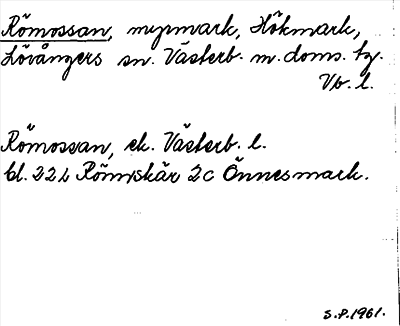 Römossan, myrmark, Hökmark,
Lövångers sn. Västerb. m. doms. tg.
Vb. l.
Römossan, ek. Västerb. l.
bl. 22L Römyskär 2c Önnesmark.
S.P.1961.